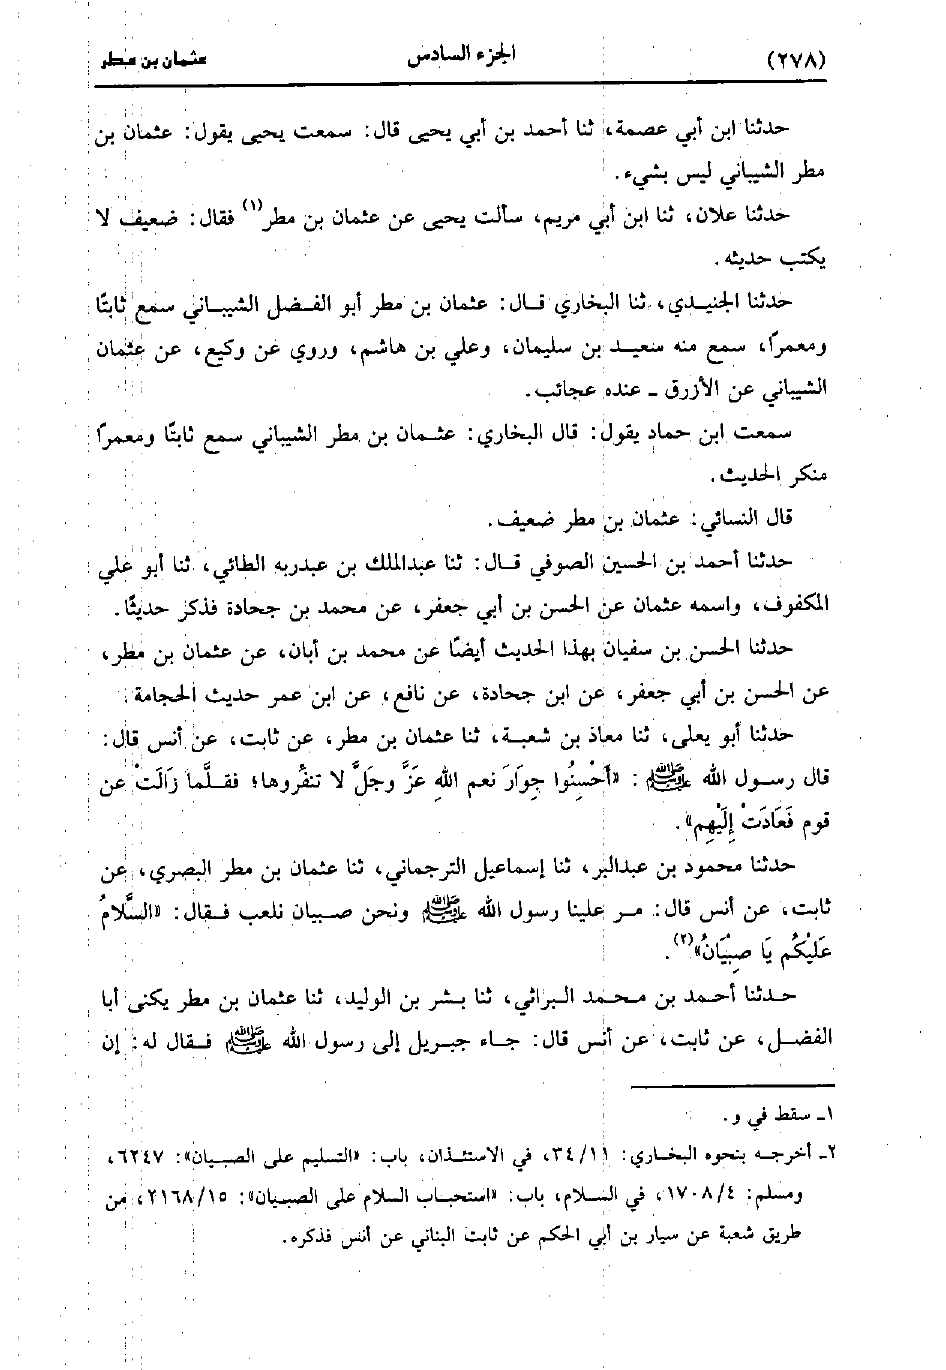 (٢٧٨) الجزء السادس عثمان بن مطر
حدثنا ابن أبي عصمة، ثنا أحمد بن أبي يحيى قال: سمعت يحيى يقول: عثمان بن
مطر الشيباني ليس بشيء.
حدثنا علان، ثنا ابن أبي مريم، سألت يحيى عن عثمان بن مطر(١) فقال: ضعيف لا
يكتب حديثه.
حدثنا الجنيدي، ثنا البخاري قال: عثمان بن مطر أبو الفضل الشيباني سمع ثابتًا
ومعمرًا، سمع منه سعيد بن سليمان، وعلي بن هاشم، وروي عن وكيع، عن عثمان
الشيباني عن الأزرق ـ عنده عجائب.
سمعت ابن حماد يقول: قال البخاري: عثمان بن مطر الشيباني سمع ثابتًا ومعمرًا
منكر الحديث.
قال النسائي: عثمان بن مطر ضعيف.
حدثنا أحمد بن الحسين الصوفي قال: ثنا عبدالملك بن عبدربه الطائي، ثنا أبو علي
المكفوف، واسمه عثمان عن الحسن بن أبي جعفر، عن محمد بن جحادة فذكر حديثًا.
حدثنا الحسن بن سفيان بهذا الحديث أيضًا عن محمد بن أبان، عن عثمان بن مطر،
عن الحسن بن أبي جعفر، عن ابن جحادة، عن نافع، عن ابن عمر حديث الحجامة.
حدثنا أبو يعلى، ثنا معاذ بن شعبة، ثنا عثمان بن مطر، عن ثابت، عن أنس قال:
قال رسول الله ﷺ: «أَحْسِنُوا جِوَارَ نعم اللهِ عَزَّ وجلَّ لا تنفُروها؛ فقلَّما زَالَتْ عن
قوم فَعَادَتْ إِلَيْهِم».
حدثنا محمود بن عبدالبر، ثنا إسماعيل الترجماني، ثنا عثمان بن مطر البصري، عن
ثابت، عن أنس قال: مر علينا رسول الله ﷺ ونحن صبيان نلعب فقال: «السَّلامُ
عَلَيْكُم يَا صِبْيَانُ»(٢).
حدثنا أحمد بن محمد البراثي، ثنا بشر بن الوليد، ثنا عثمان بن مطر يكنى أبا
الفضل، عن ثابت، عن أنس قال: جاء جبريل إلى رسول الله ﷺ فقال له: إن
١ـ سقط في و.
٢ـ أخرجه بنحوه البخاري: ٣٤/١١، في الاستئذان، باب: «التسليم على الصبيان»: ٦٢٤٧،
ومسلم: ١٧٠٨/٤، في السلام، باب: «استحباب السلام على الصبيان»: ٢١٦٨/١٥، من
طريق شعبة عن سيار بن أبي الحكم عن ثابت البناني عن أنس فذكره.